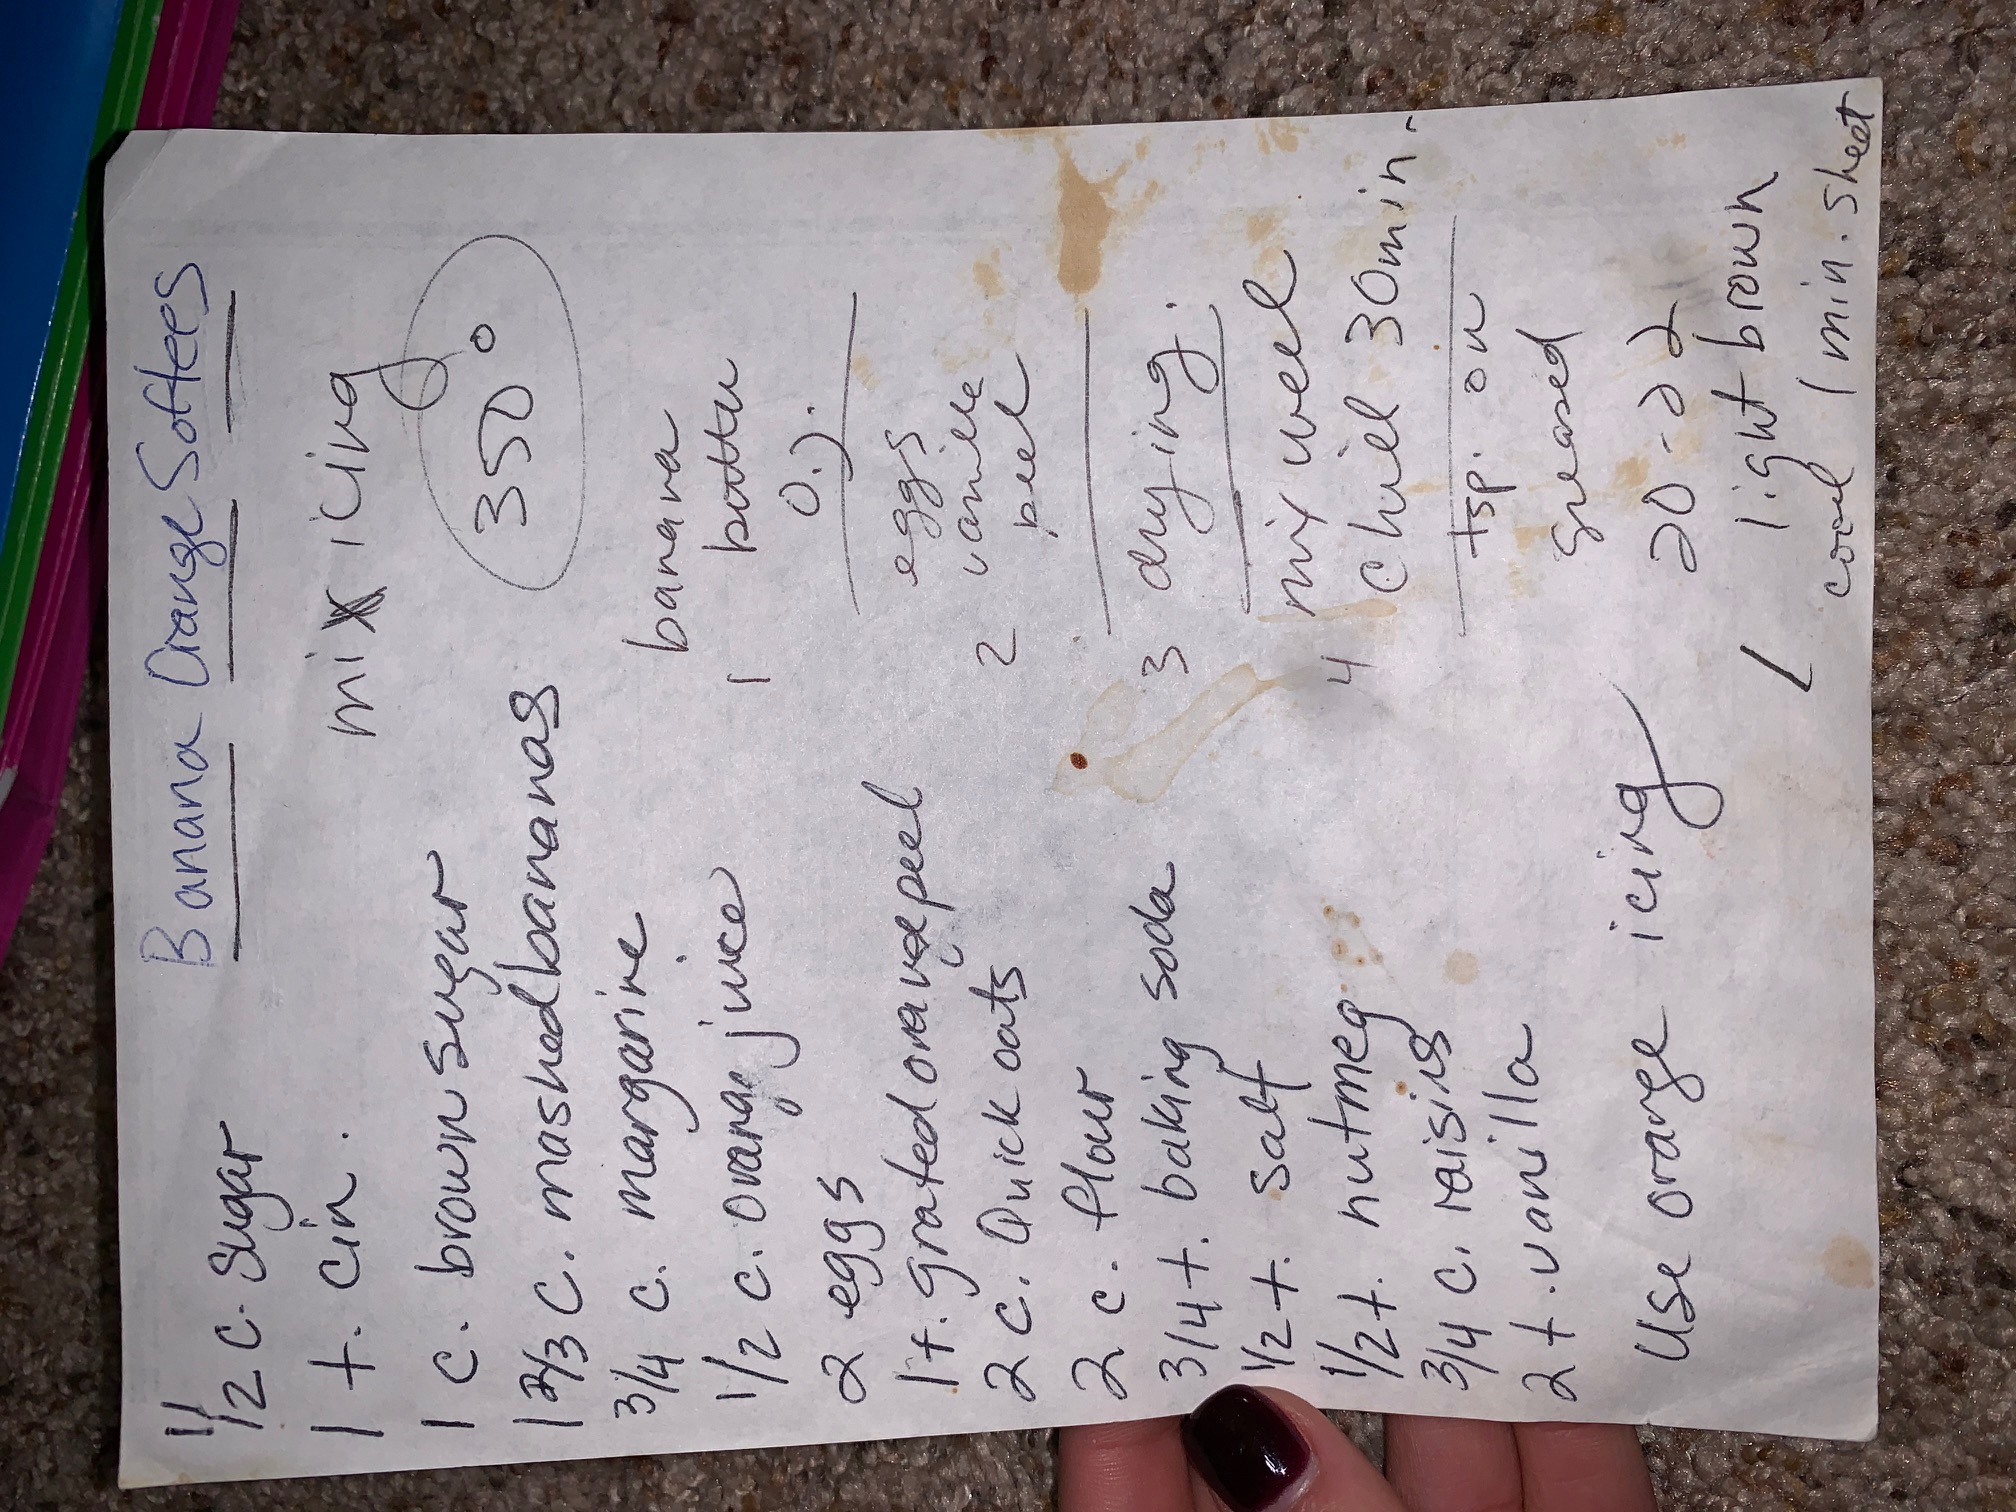 Banana Orange Softees
1/2 c. sugar
1 t. cin.
1 c. brown sugar
1 2/3 c. mashed bananas
3/4 c. margarine
1/2 c. orange juice
2 eggs
1 t. grated orange peel
2 c. Quick oats
2 c. flour
3/4 t. baking soda
1/2 t. salt
1/2 t. nutmeg
3/4 c. raisins
2 t. vanilla
Use orange icing
mix icing
350°
banana
1 butter
o.j.
eggs
vanilla
2 peel
3 dry ing.
mix well
4 chill 30 min.
tsp. on
greased
20-22
light brown
cool 1 min. sheet